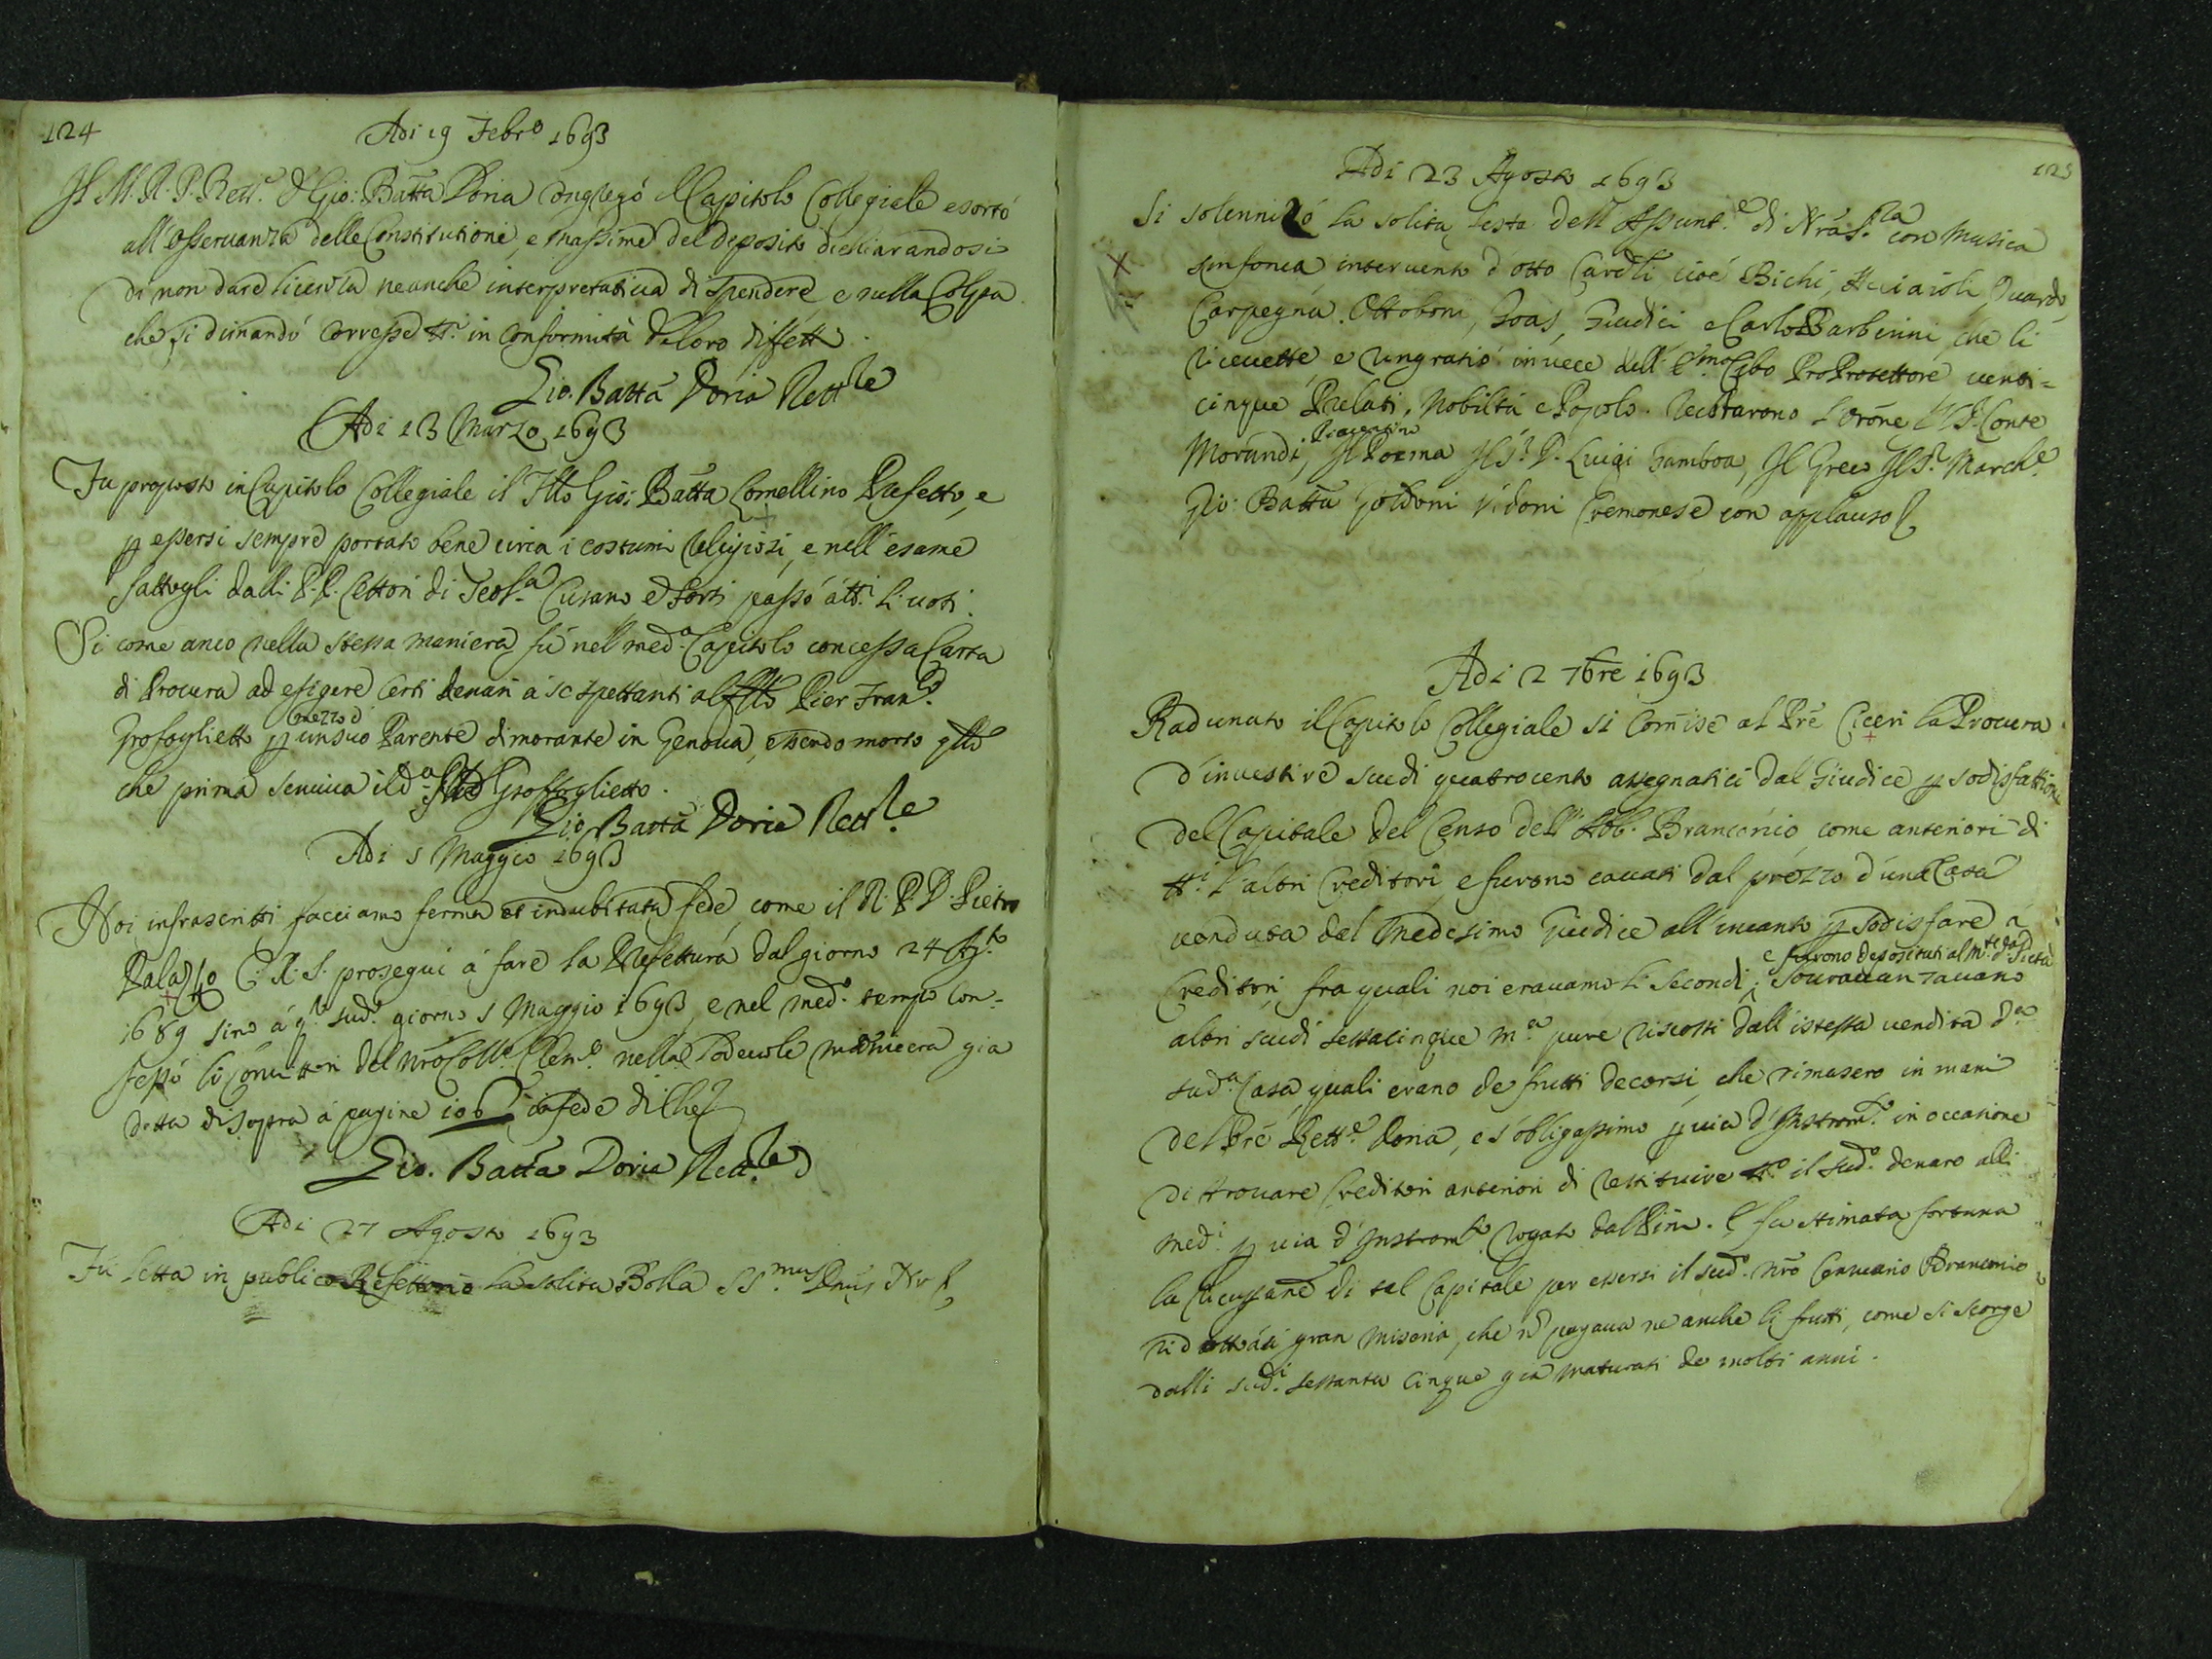 124
Adi 19 Febr.o 1693
Il M. R. P. Rett.e D. Gio: Batta Doria congregò il Capitolo Collegiale esortò
all'osseruanza delle Constitutioni, e massime del Deposito dichiarandosi
di non dare licenza neanche interpretatiua di spendere, e nella Colpa
che si dimandò corresse tt.i in conformità de loro diffetti.
Gio. Batta Doria Rett.le
Adi 13 Marzo 1693
Fu proposto in Capitolo Collegiale il Fllo Gio: Batta Comellino Prefetto, e
p essersi sempre portato bene circa i costumi religiosi, e nell'esame
fattogli dalli P.P. Lettori di Teol.a Cusano e Forti passò a tt.i li uoti.
Si come anco nella stessa maniera fù nel med.o Capitolo concessa Carta
di Procura ad esigere certi denari a se spettanti al Fllo Pier Fran.co
Grofoglietto p mezzo d' un suo Parente dimorante in Genoua, essendo morto qllo
che prima seruiua il d.o Fllo Groffoglietto.
Gio. Batta Doria Rett.le
Adi 5 Maggio 1693
Noi infrascritti facciamo ferma et indubitata fede come il R. P. D. Pietro
Palazzo C. R. S. proseguì à fare la Prefettura dal giorno 24 Ag.to
1689 sino à q.o sud.o giorno 5 Maggio 1693, e nel med.o tempo con-
fessò li Conuittori del nrõ Coll.o Clem.o nella lodeuole maniera gia
detta di sopra à pagine 106 in fede di che
Gio. Batta Doria Rett.le
Adi 27 Agosto 1693
Fu letta in publico Refettorio la solita Bolla SS.mus Dnus Nr
125
Adi 23 Agosto 1693
Si solennizò la solita festa dell'Assunt.e di Nrã S.ra con Musica
sinfonia interuento d'otto Card.li cioè Bichi, Acciaioli,
Carpegna, Ottoboni, Goas, Giudici e Carlo Barberini, che li
riceuette, e ringratiò in uece dell'E.mo Cibo ProProtettore uenti=
cinque Prelati, Nobiltà e Popolo. Recitarono l'Orõne Il S.r Conte
Morandi Piacentino, Il Poema Il S.r D. Luigi Gamboa, Il Greco Il S.r March.e
Gio: Batta Goldoni Vidoni Cremonese con applauso
Adi 2 7bre 1693
Radunato il Capitolo Collegiale si comise al Prẽ Ciceri la Procura
d'inuestire scudi quattrocento assegnatici dal Giudice p sodisfattione
del Capitale del Censo dell'Abb. Branconio come anteriori di
tt.i l'altri Creditori, e furono cauati dal prezzo d'una Casa
uenduta dal medesimo Giudice all'incanto p sodisfare à
Creditori, fra quali noi erauamo li secondi; e furono depositati al M.te della Pietà Sourauanzauano
altri scudi sessacinque m.a pure riscossi dall'istessa uendita d.a
sud.a Casa quali erano de frutti decorsi, che rimasero in mani
del Prẽ Rett.e Doria, e s'obligassimo p uia d'Instrom.to in occasione
di trouare Creditori anteriori di restituire tt.o il sud.o denaro alli
med.i p uia d'Instrom.to rogato dal Pini. E fu stimata fortuna
la ricuperane di tal Capitale per essersi il sud.o nrõ Censuario Branconio
ridotto à gran miseria, che nõ pagaua ne anche li frutti, come si scorge
dalli sud.i sessanta cinque gia maturati de molti anni.